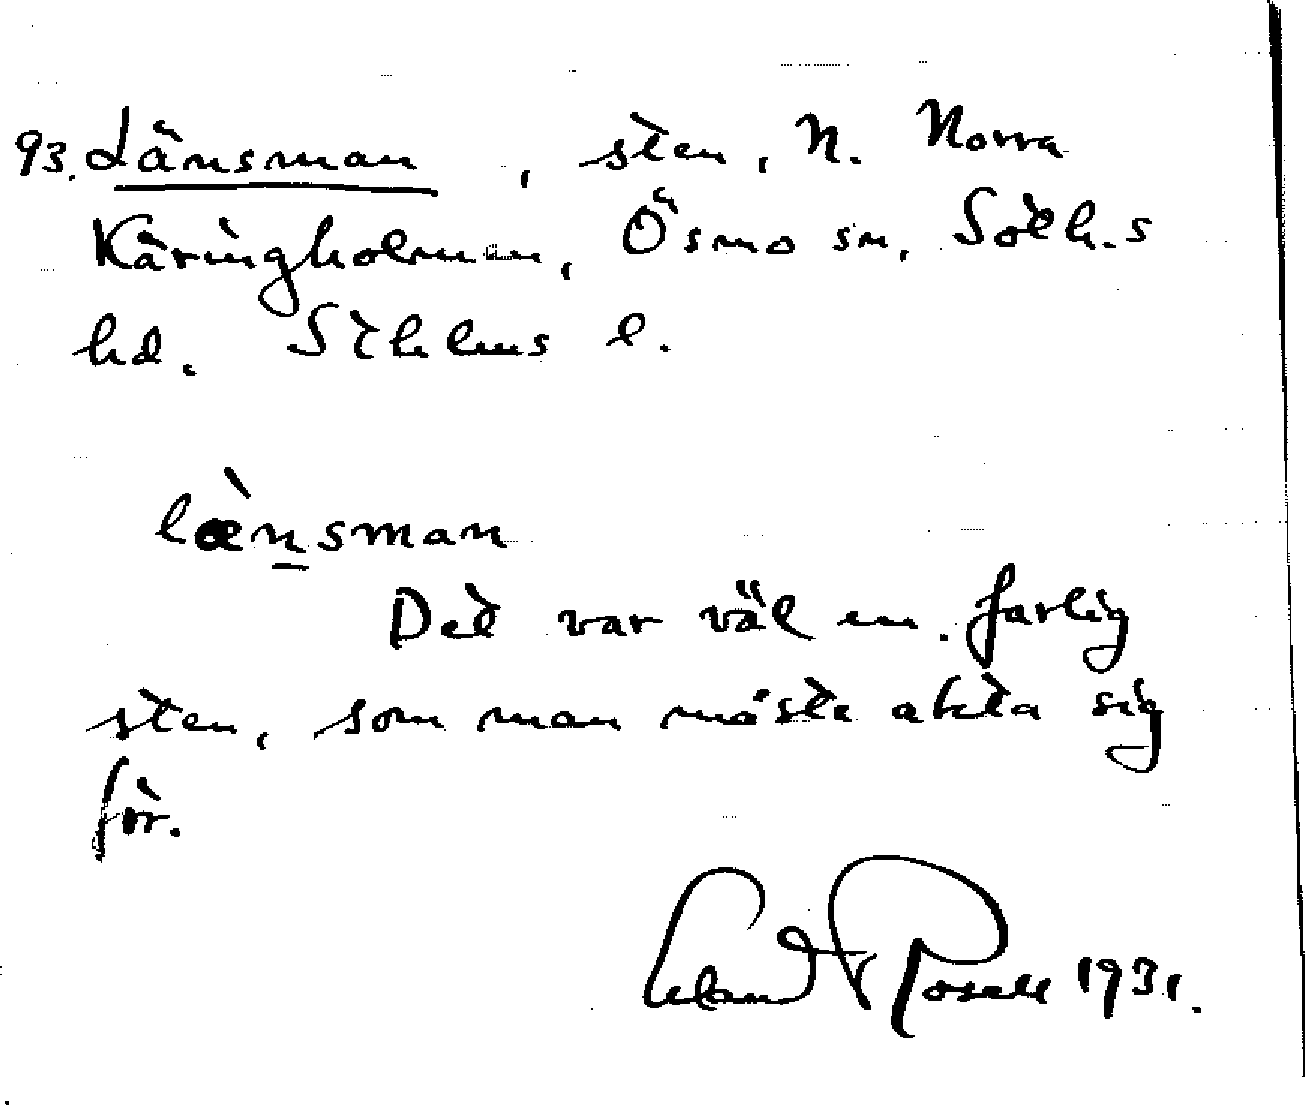 93. Länsman, sten, N. Norra
Käringholmen, Ösmo sn, Soth.s
hd. Sthlms l.
lǽnsman
Det var väl en farlig
sten, som man måste akta sig
för.
Rosell 1931.